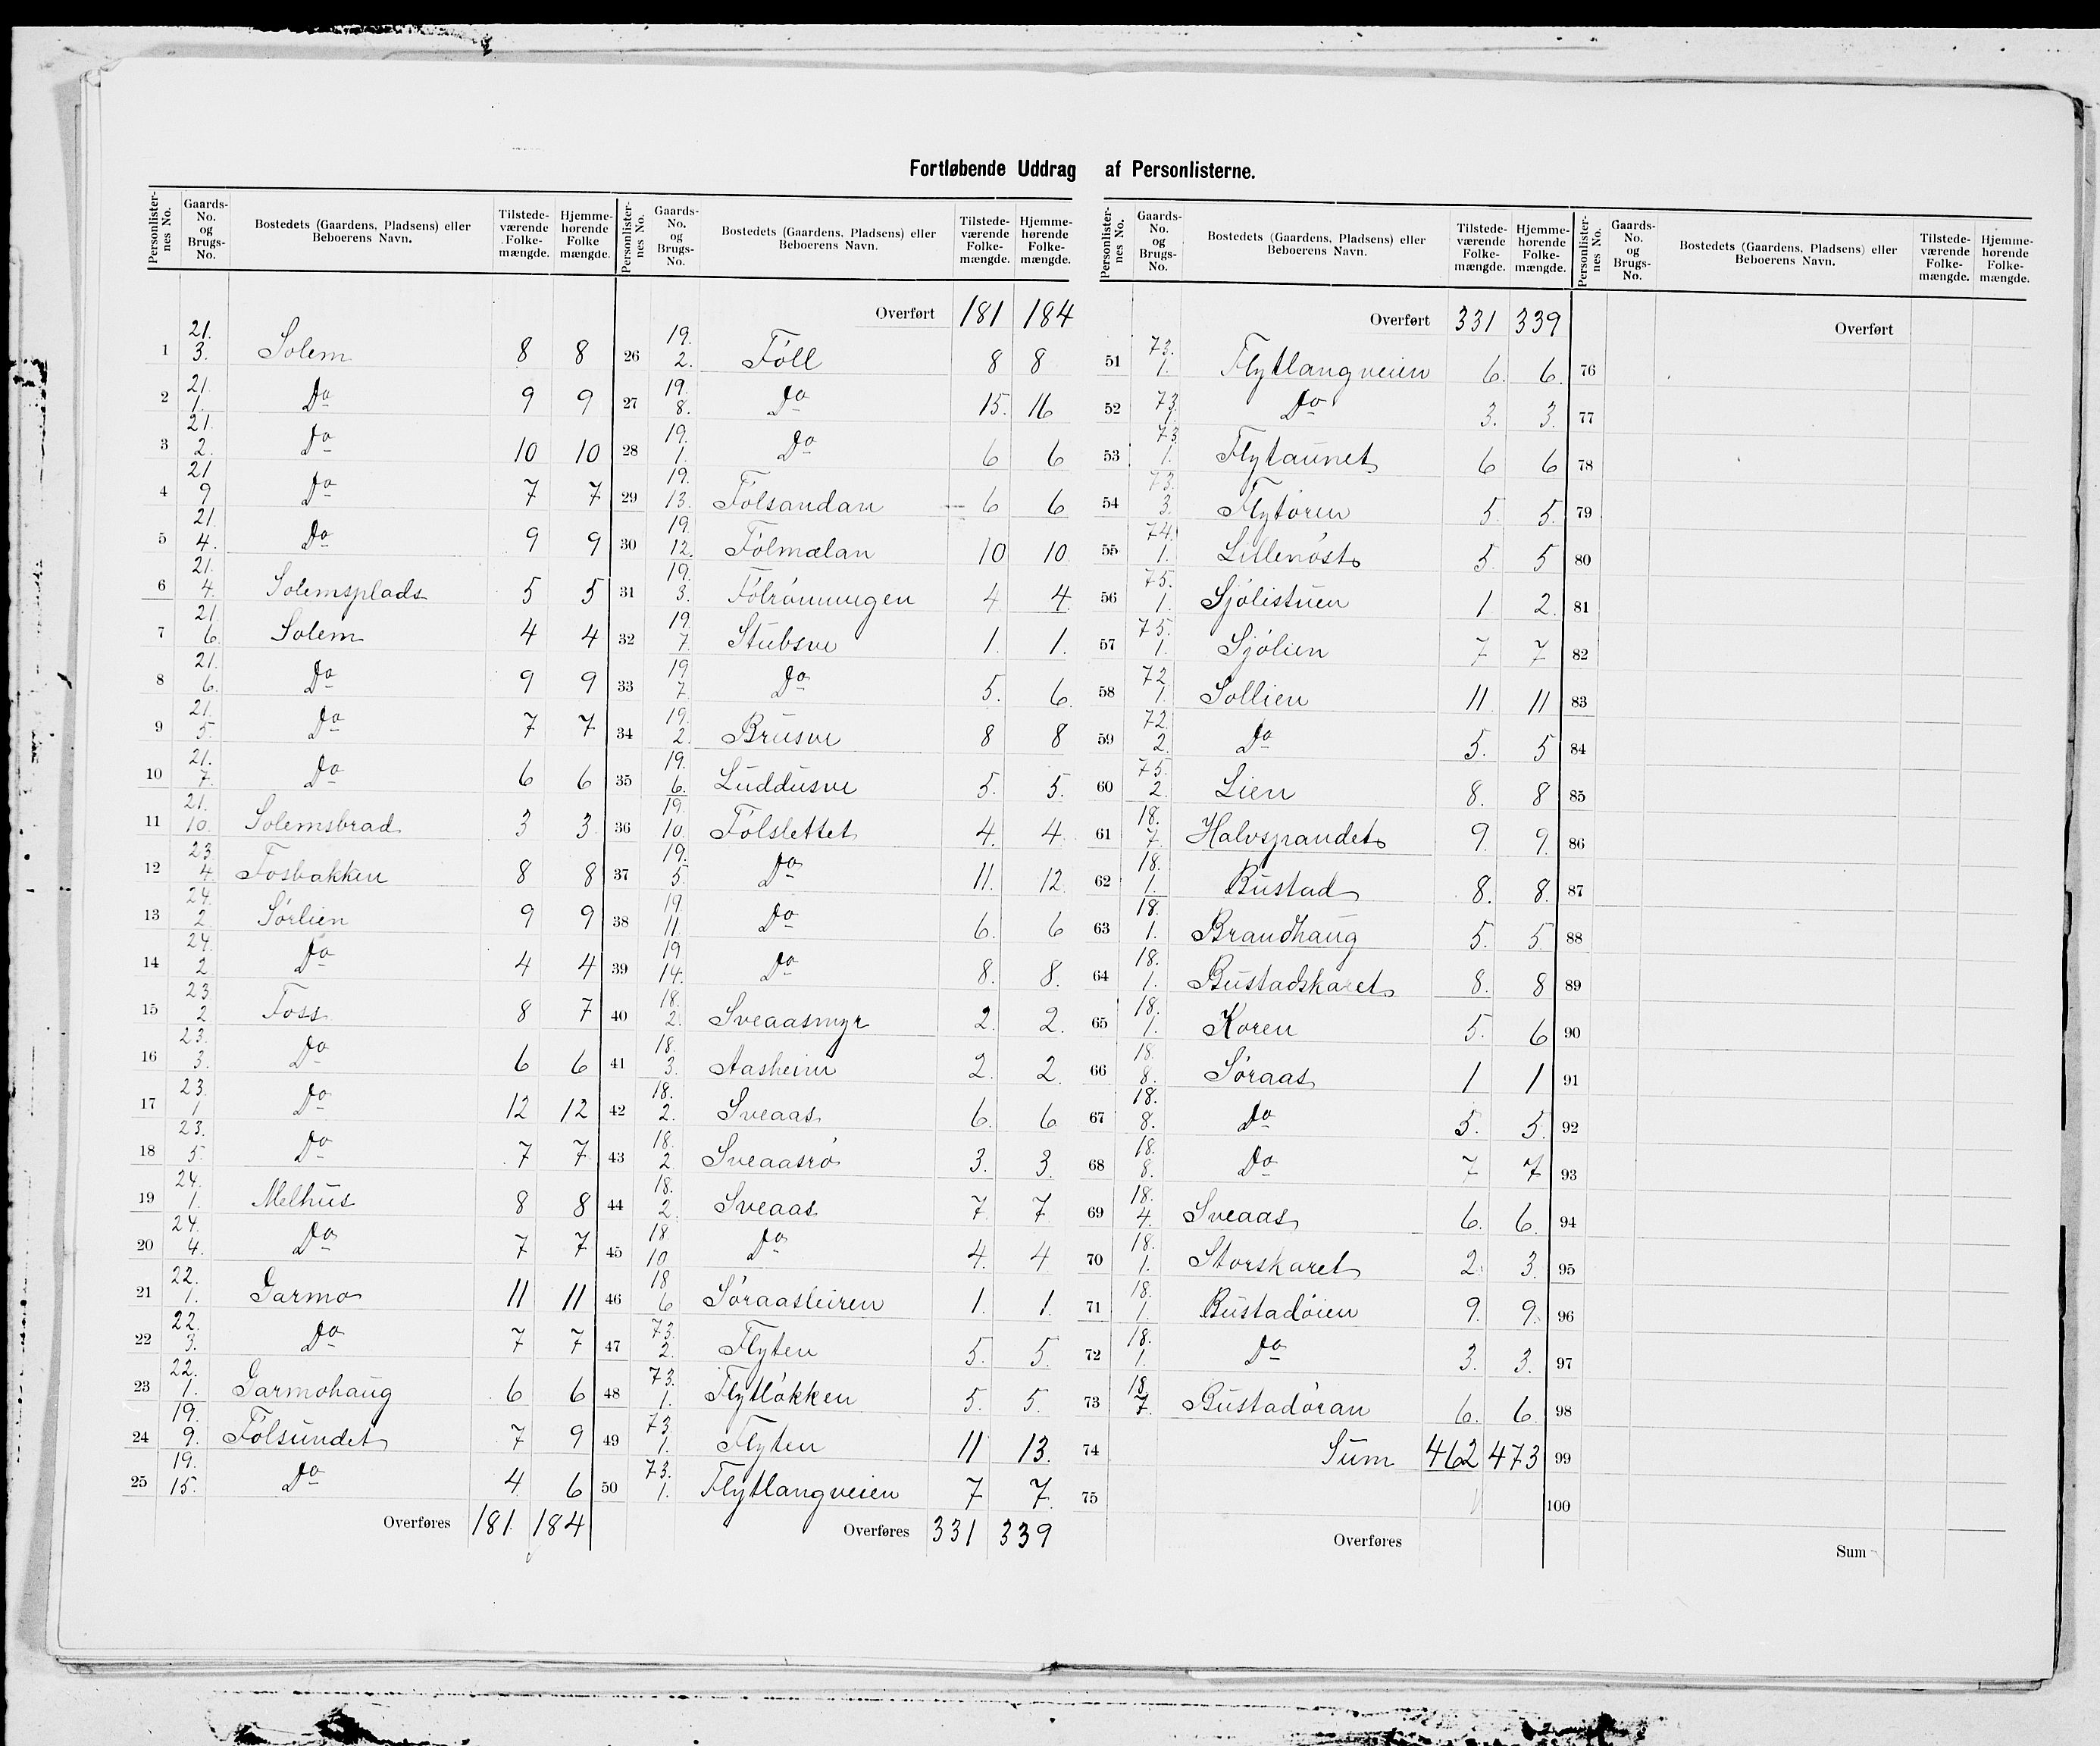 Fortløbende Uddrag af Personlisterne.
Personlisternes No. | Gaards-No. og Brugs-No. | Bostedets (Gaardens, Pladsens) eller Beboerens Navn. | Tilstedeværende Folkemængde. | Hjemmehørende Folkemængde.
1 21. 3. Solem 8 8
2 21. 1. Do 9 9
3 21. 2. Do 10 10
4 21 9 Do 7 7
5 21. 4. Do 9 9
6 21. 4. Solemsplads 5 5
7 21. 6. Solem 4 4
8 21. 6. Do 9 9
9 21. 5. Do 7 7
10 21. 7. Do 6 6
11 21. 10. Solemsbrad 3 3
12 23. 4. Fosbakken 8 8
13 24. 2. Sørlien 9 9
14 24. 2 Do 4 4
15 23. 2 Foss 8 7
16 23. 3. Do 6 6
17 23. 1 Do 12 12
18 23. 5. Do 7 7
19 24. 1. Melhus 8 8
20 24. 4. Do 7 7
21 22. 1. Garmo 11 11
22 22. 3. Do 7 7
23 22. 1. Garmohaug 6 6
24 19. 9. Følsundet 7 9
25 19. 15. Do 4 6
Overføres 181. 184
Personlisternes No. | Gaards-No. og Brugs-No. | Bostedets (Gaardens, Pladsens) eller Beboerens Navn. | Tilstedeværende Folkemængde. | Hjemmehørende Folkemængde.
Overført 181 184
26 19. 2. Føll 8 8
27 19. 8. Do 15. 16
28 19. 1. Do 6 6
29 19. 13. Følsandan 6 6
30 19. 12. Følmælan 10 10
31 19. 3. Følrønningen 4 4
32 19. 7. Stubsve 1. 1.
33 19 7. Do 5. 6.
34 19. 2. Brusve 8 8
35 19. 6. Luddusve 5. 5.
36 19. 10. Følslettet 4. 4
37 19. 5. Do 11. 12.
38 19 11. Do 6. 6
39 19 14. Do 8. 8.
40 18. 2. Sveaasmyr 2. 2.
41 18. 3. Aasheim 2. 2
42 18. 2. Sveaas 6. 6
43 18. 2 Sveaasrø 3. 3.
44 18. 2. Sveaas 7. 7
45 18 10 Do 4. 4
46 18 6 Søraasleiren 1. 1.
47 73. 2. Flyten 5. 5.
48 73. 1. Flytløkken 5. 5.
49 73 1. Flyten 11 13.
50 73. 1. Flytlangveien 7 7.
Overføres 331 339
Personlisternes No. | Gaards-No. og Brugs-No. | Bostedets (Gaardens, Pladsens) eller Beboerens Navn. | Tilstedeværende Folkemængde. | Hjemmehørende Folkemængde.
Overført 331 339
51 73. 1. Flytlangveien 6. 6.
52 73. 1. Do 3. 3.
53 73 1. Flytaunet 6 6
54 73. 3. Flytøren 5. 5.
55 74. 1. Lillenøst 5. 5
56 75. 1. Sjølistuen 1 2.
57 75. 1. Sjølien 7 7
58 72 1. Sollien 11 11
59 72. 2. Do 5. 5
60 75. 2. Lien 8. 8
61 18. 7. Halvspandet 9. 9.
62 18. 1. Bustad 8. 8.
63 18. 1. Brandhaug 5. 5
64 18. 1. Bustadskaret 8. 8
65 18. 1. Koren 5. 6
66 18. 8. Søraas 1 1
67 18. 8. Do 5. 5.
68 18. 8. Do 7 7
69 18. 4. Sveaas 6. 6.
70 18. 1. Storskaret 2. 3.
71 18. 1. Bustadøien 9. 9.
72 18. 1. Do 3. 3.
73 18. 7. Bustadøran 6. 6.
74 Sum 462 473
75
Overføres
Personlisternes No. | Gaards-No. og Brugs-No. | Bostedets (Gaardens, Pladsens) eller Beboerens Navn. | Tilstedeværende Folkemængde. | Hjemmehørende Folkemængde.
Overført
76
77
78
79
80
81
82
83
84
85
86
87
88
89
90
91
92
93
94
95
96
97
98
99
100
Sum